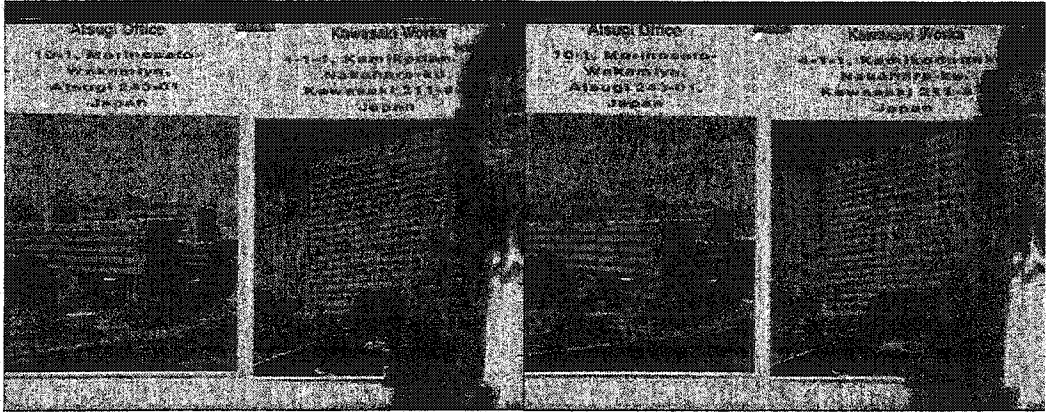 Atsugi Office
10-1, Morinosato-
Wakamiya,
Atsugi 243-01
Japan
Kawasaki Works
4-1-1, Kamikodan
Nakahara-ku
Kawasaki 211-
Japan
Atsugi Office
10-1, Morinosato-
Wakamiya,
Atsugi 243-01,
Japan
Kawasaki Works
4-1-1, Kamikodana
Nakahara-ku,
Kawasaki 211-
Japan